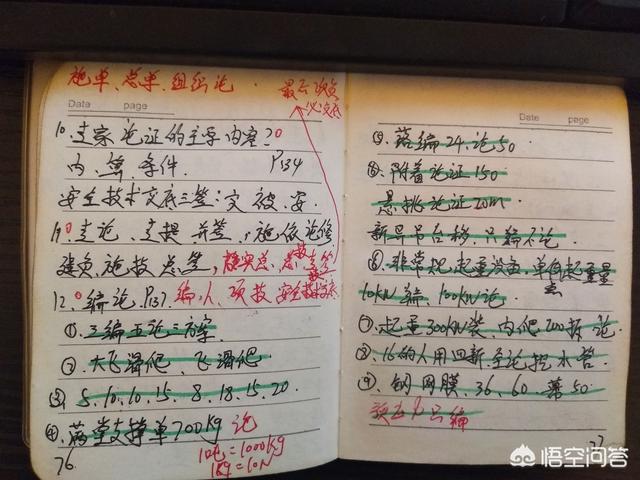 施单、总单、组织论
最后项负
必交底
Data page
10. 专家论证的主要内容?
内、算、条件. P134
安全技术交底三签:交、被、安.
11. 专论、专提并签,施依论修
建负、施技、总签,
12. 编论 P137. 编人、项技、安全技术交底
①. 三编五论三方案
②. 大飞滑爬、飞滑爬
③. 5、10、10、15、8、18、15、20.
④. 满堂支撑单700kg论
10吨=1000kg
1kg=10N
76
Date page
⑤. 落编24论50
⑥. 附着论证150
悬挑论证20m
新异吊台移、只编不论.
⑥. 非常规起重设备、单件起重量
10KN编、100KN论.
⑦. 起重300KN装、内爬200拆论
⑧. 16的人用四新全论挖水苔
⑨. 钢、网膜、36、60、幕50.
预应力只编
77
悟空问答